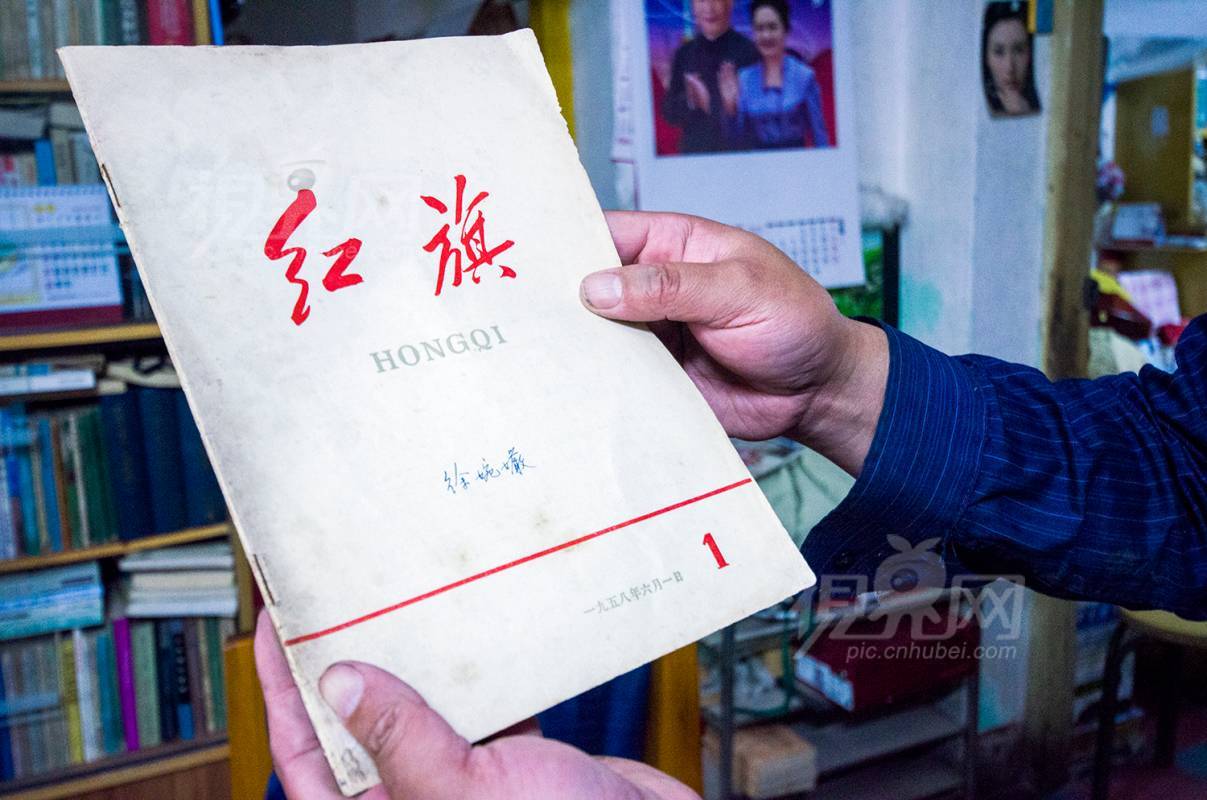 红旗
HONGQI
徐婉
一九五八年六月一日
1
视界网
pic.cnhubei.com